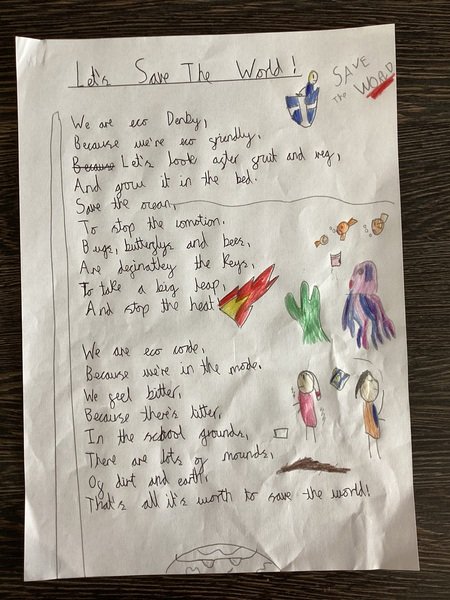 Let's Save The World!
SAVE
The WORLD
We are eco Denby,
Because we're eco friendly.
Because Let's look after fruit and veg,
And grow it in the bed.
Save the ocean,
To stop the comotion.
Bugs, butterflys and bees,
Are definatley the keys,
To take a big leap,
And stop the heat
We are eco code,
Because we're in the mode.
We feel better,
Because there's litter,
In the school grounds,
There are lots of mounds,
Of dirt and earth,
That's all it's worth to save the world!